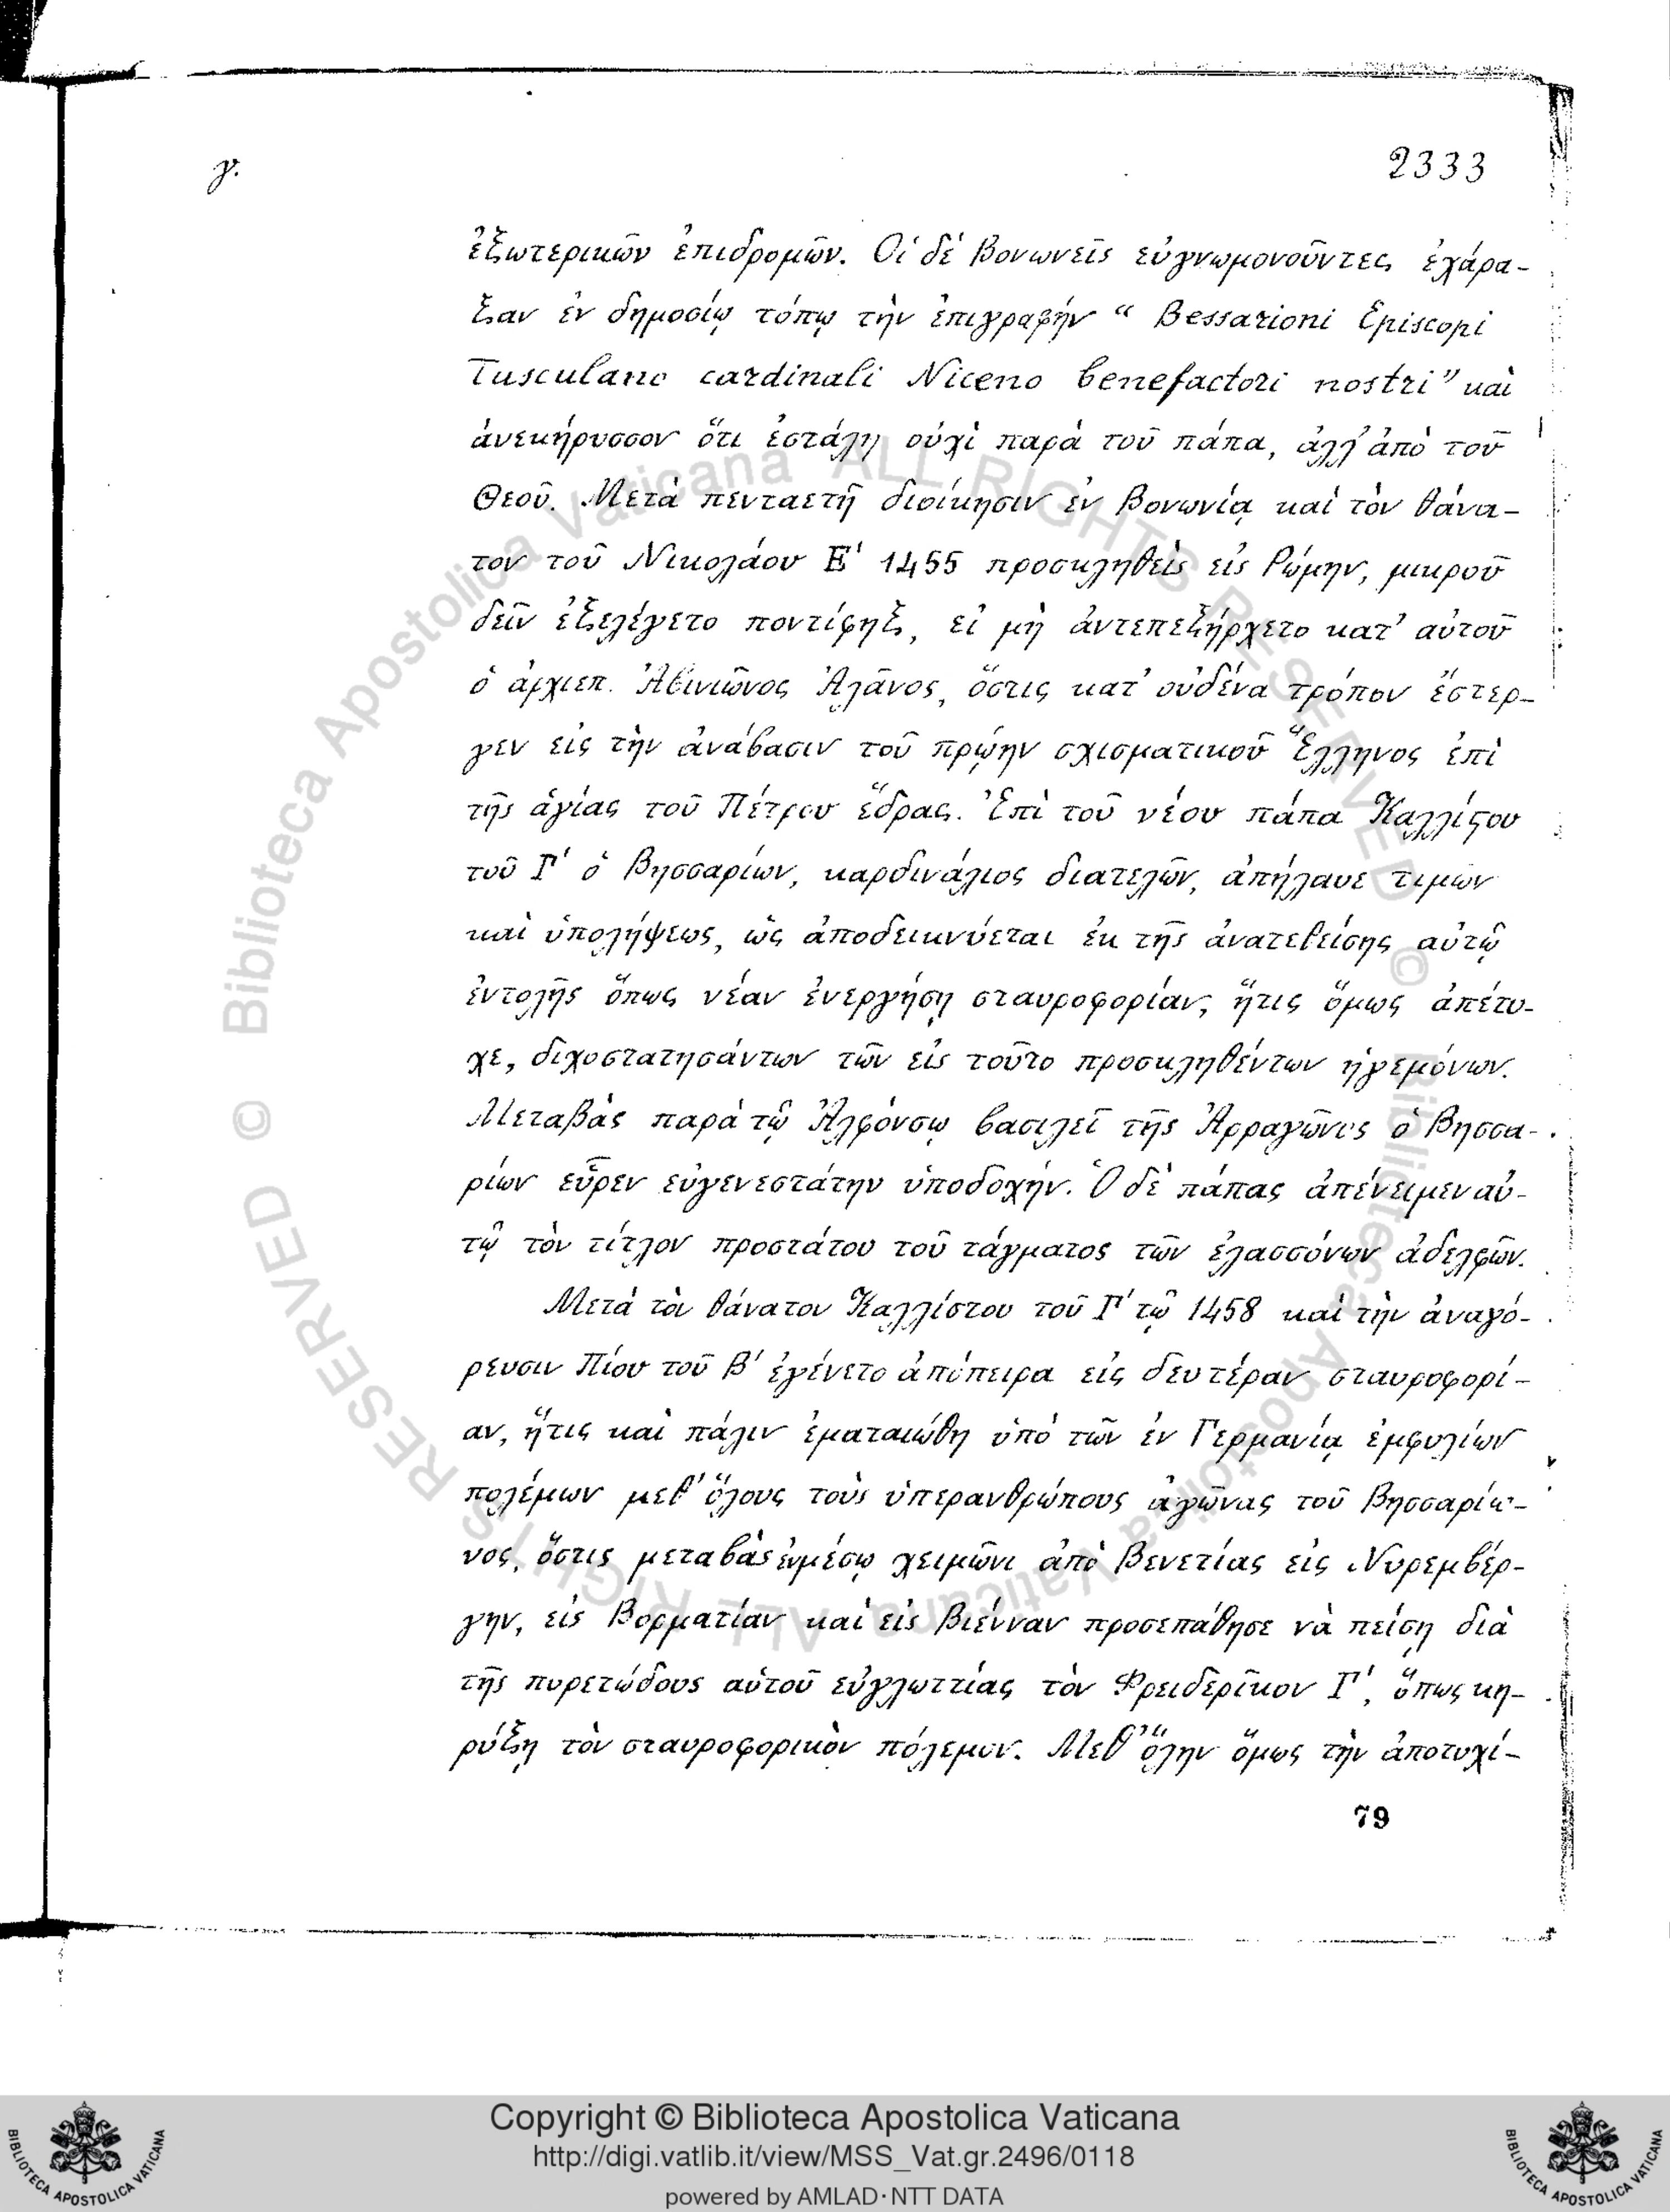 γ.
2333
ἐξωτερικῶν ἐπιδρομῶν. Οἱ δὲ Βονωνεῖς εὐγνωμονοῦντες ἐχάρα-
ξαν ἐν δημοσίῳ τόπῳ τὴν ἐπιγραφήν “ Bessarioni Episcopi
Tusculano cardinali Niceno benefactori nostri” καὶ
ἀνεκήρυσσον ὅτι ἐστάλη οὐχὶ παρὰ τοῦ πάπα, ἀλλ’ ἀπὸ τοῦ
Θεοῦ. Μετὰ πενταετῆ διοίκησιν ἐν Βονωνίᾳ καὶ τὸν θάνα-
τον τοῦ Νικολάου Ε' 1455 προσκληθεὶς εἰς Ρώμην, μικροῦ
δεῖν ἐξελέγετο ποντίφηξ, εἰ μὴ ἀντεπεξήρχετο κατ’ αὐτοῦ
ὁ ἀρχιεπ. Ἀβινιῶνος Ἀλᾶνος, ὅστις κατ’ οὐδένα τρόπον ἔστερ-
γεν εἰς τὴν ἀνάβασιν τοῦ πρώην σχισματικοῦ Ἕλληνος ἐπὶ
τῆς ἁγίας τοῦ Πέτρου ἕδρας. Ἐπὶ τοῦ νέου πάπα Καλλίστου
τοῦ Γ' ὁ Βησσαρίων, καρδινάλιος διατελῶν, ἀπήλαυε τιμῶν
καὶ ὑπολήψεως, ὡς ἀποδεικνύεται ἐκ τῆς ἀνατεθείσης αὐτῷ
ἐντολῆς ὅπως νέαν ἐνεργήσῃ σταυροφορίαν, ἥτις ὅμως ἀπέτυ-
χε, διχοστατησάντων τῶν εἰς τοῦτο προσκληθέντων ἡγεμόνων.
Μεταβὰς παρὰ τῷ Ἀλφόνσῳ βασιλεῖ τῆς Ἀρραγῶνος ὁ Βησσα-
ρίων εὗρεν εὐγενεστάτην ὑποδοχήν. Ὁ δὲ πάπας ἀπένειμεν αὐ-
τῷ τὸν τίτλον προστάτου τοῦ τάγματος τῶν ἐλασσόνων ἀδελφῶν.
Μετὰ τὸν θάνατον Καλλίστου τοῦ Γ' τῷ 1458 καὶ τὴν ἀναγό-
ρευσιν Πίου τοῦ Β' ἐγένετο ἀπόπειρα εἰς δευτέραν σταυροφορί-
αν, ἥτις καὶ πάλιν ἐματαιώθη ὑπὸ τῶν ἐν Γερμανίᾳ ἐμφυλίων
πολέμων μεθ’ ὅλους τοὺς ὑπερανθρώπους ἀγῶνας τοῦ Βησσαρίω-
νος, ὅστις μεταβὰς ἐνμέσῳ χειμῶνι ἀπὸ Βενετίας εἰς Νυρεμβέρ-
γην, εἰς Βορματίαν καὶ εἰς Βιένναν προσεπάθησε νὰ πείσῃ διὰ
τῆς πυρετώδους αὐτοῦ εὐγλωττίας τὸν Φρειδερῖκον Γ', ὅπως κη-
ρύξῃ τὸν σταυροφορικὸν πόλεμον. Μεθ’ ὅλην ὅμως τὴν ἀποτυχί-
79
© Biblioteca Apostolica Vaticana ALL RIGHTS RESERVED © Biblioteca Apostolica Vaticana ALL RIGHTS RESERVED
Copyright © Biblioteca Apostolica Vaticana
http://digi.vatlib.it/view/MSS_Vat.gr.2496/0118
powered by AMLAD·NTT DATA
BIBLIOTECA APOSTOLICA VATICANA
BIBLIOTECA APOSTOLICA VATICANA